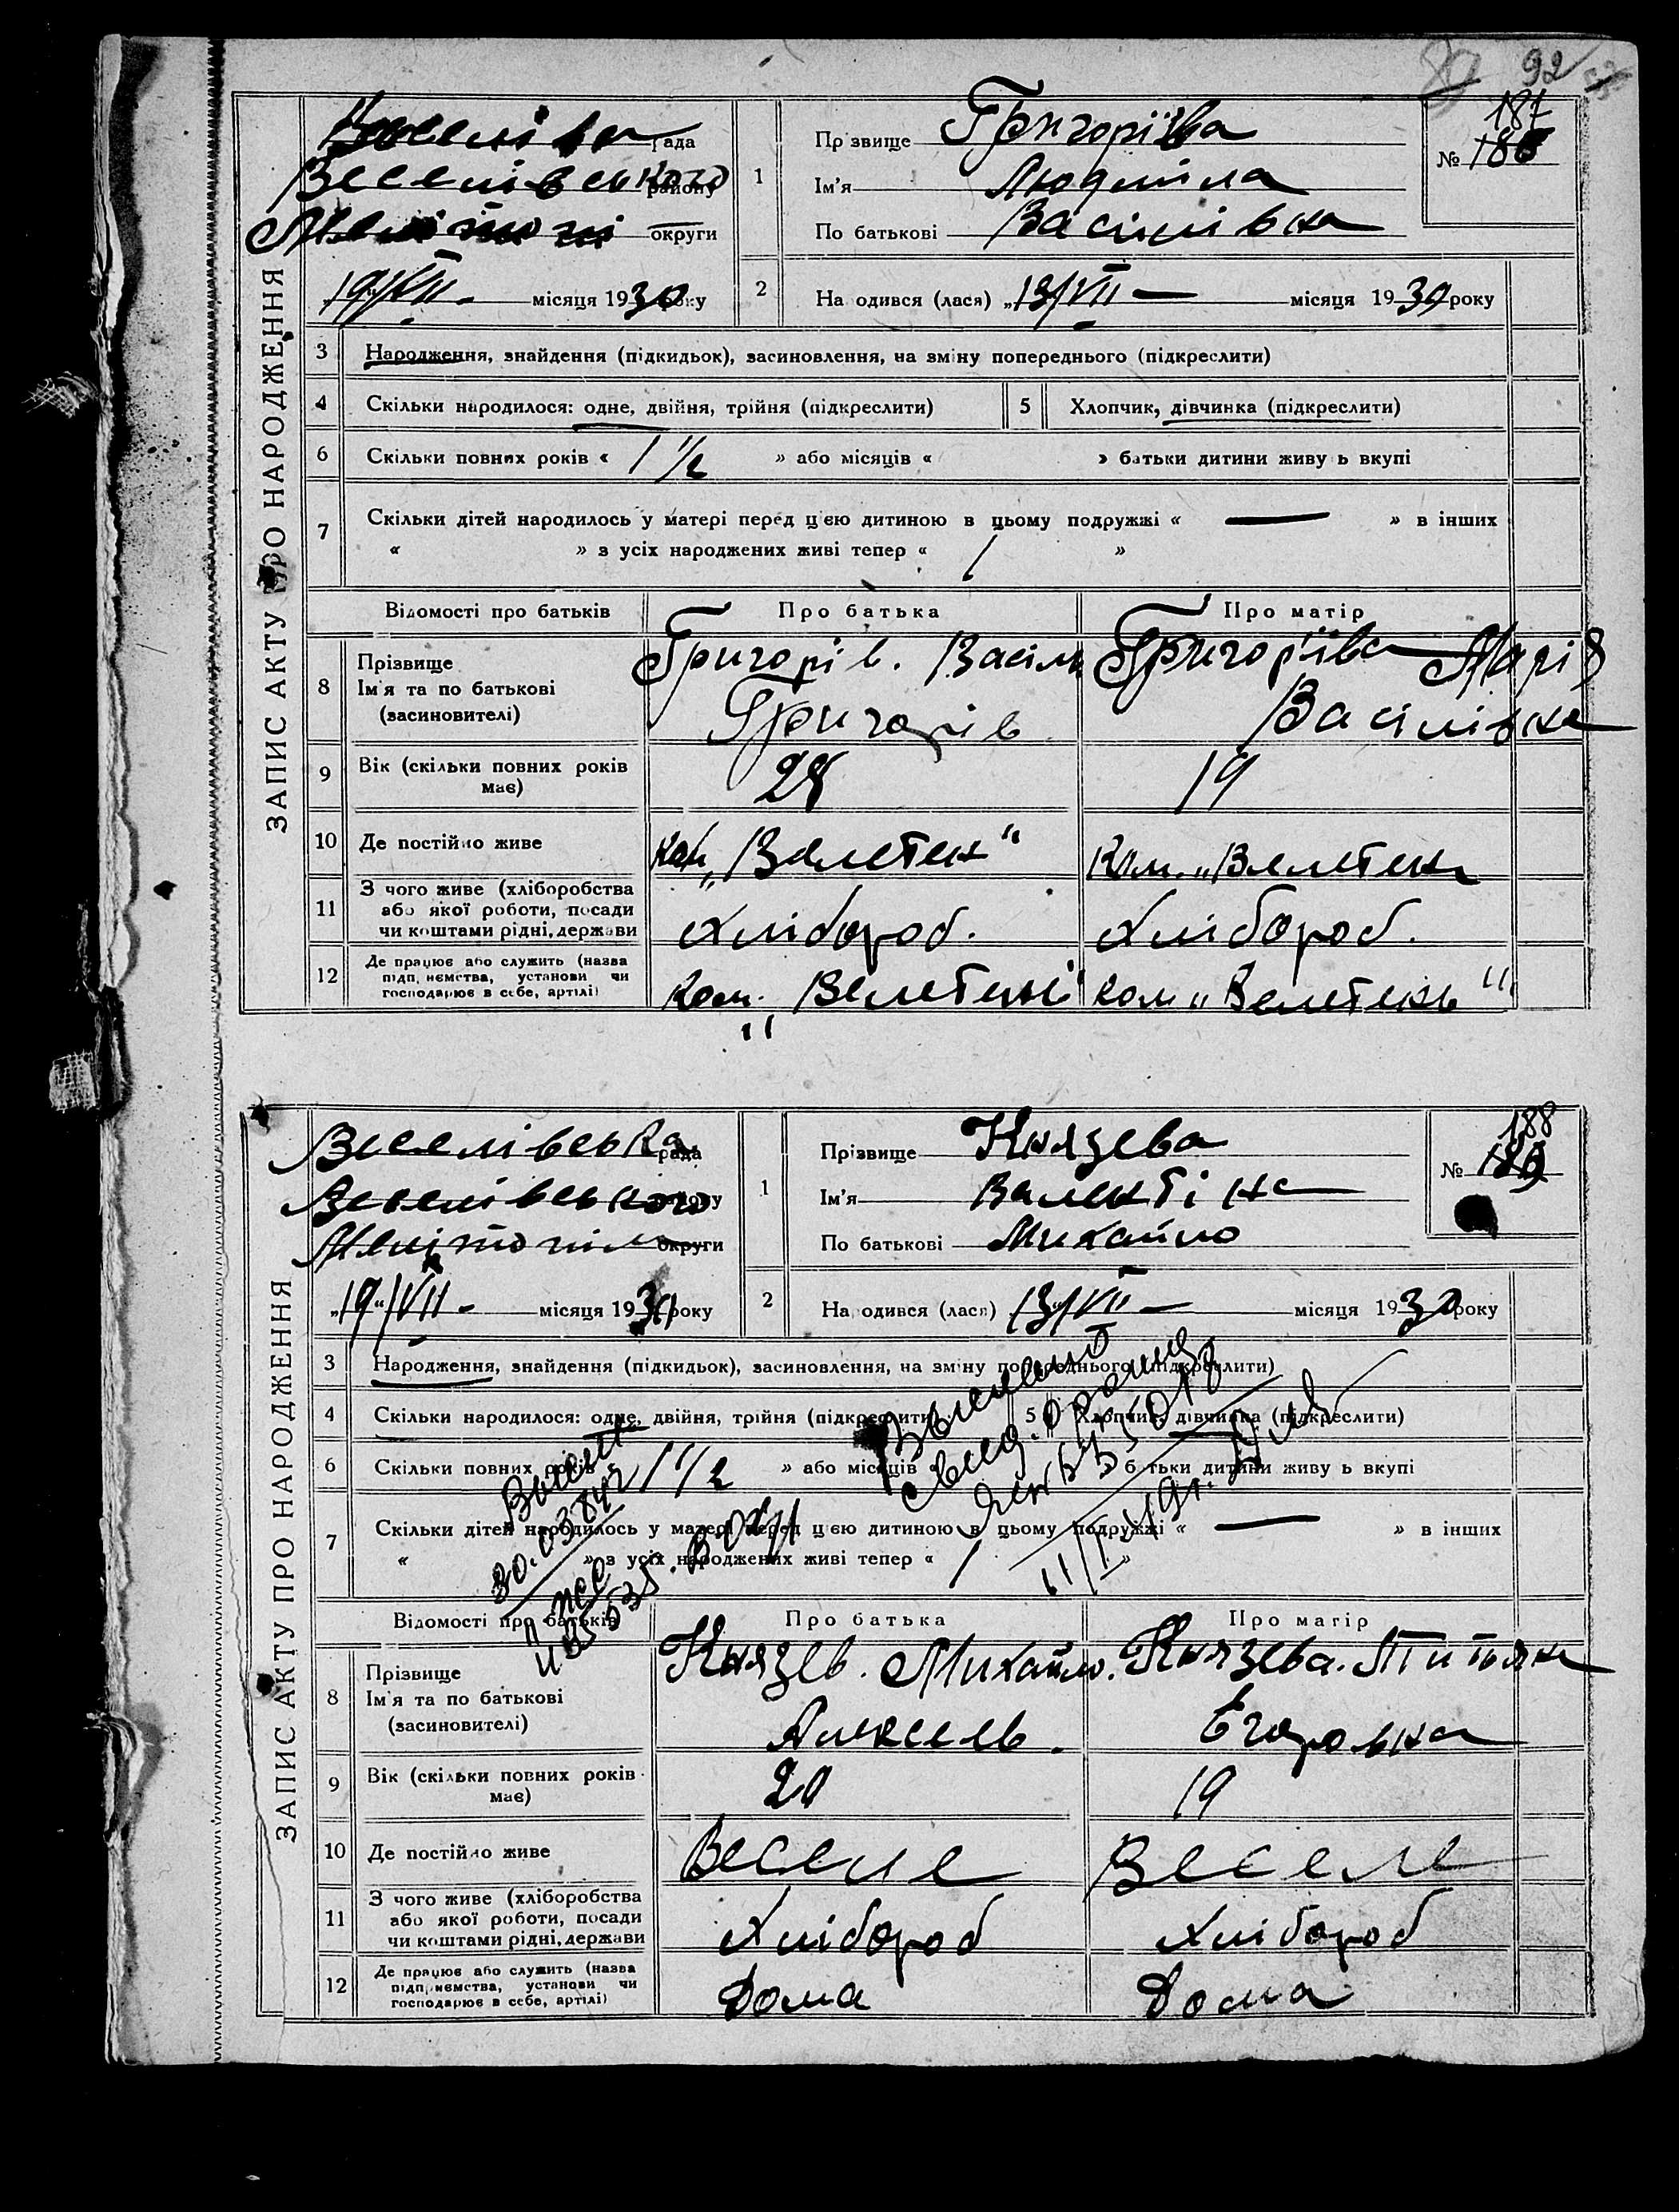 92
ЗАПИС АКТУ ПРО НАРОДЖЕННЯ
рада
Веселівського району
округи
19/VII місяця 1930 року
1
Прізвище Григоріїва
Ім'я Людміла
По батькові Васілівна
187
№ 186
2
Народився (лася) „13/VII — місяця 1930 року
3 Народження, знайдення (підкидьок), засиновлення, на зміну попереднього (підкреслити)
4 Скільки народилося: одне, двійня, трійня (підкреслити)
5 Хлопчик, дівчинка (підкреслити)
6 Скільки повних років « 1 1/2 » або місяців « » батьки дитини живуть вкупі
7 Скільки дітей народилось у матері перед цією дитиною в цьому подружжі « — » в інших
« » з усіх народжених живі тепер « 1 »
Відомості про батьків Про батька Про матір
8 Прізвище
Ім'я та по батькові
(засиновителі)
Григорів. Васіль
Григорів
Григоріїва Марія
Васілівна
9 Вік (скільки повних років
має)
28
19
10 Де постійно живе
Ком „Велетен“
Ком. „Велетень
11 З чого живе (хліборобства
або якої роботи, посади
чи коштами рідні, держави
Хлібороб.
Хлібороб.
12 Де працює або служить (назва
підприємства, установи чи
господарює в себе, артілі)
Ком. „Велетень“
Ком „Велетень“
ЗАПИС АКТУ ПРО НАРОДЖЕННЯ
Веселівська рада
Веселівського району
Мелітопільс округи
„19“/VII - місяця 1930 року
1
Прізвище Князева
Ім'я Валентіна
По батькові Михайло
188
№
2
Народився (лася) 13/VII — місяця 1930 року
3 Народження, знайдення (підкидьок), засиновлення, на зміну попереднього (підкреслити)
4 Скільки народилося: одне, двійня, трійня (підкреслити)
5 Хлопчик, дівчинка (підкреслити)
6 Скільки повних років 1 1/2 » або місяців « » батьки дитини живуть вкупі
7 Скільки дітей народилось у матері перед цією дитиною в цьому подружжі « — » в інших
« » з усіх народжених живі тепер « 1 »
Відомості про батьків Про батька Про матір
8 Прізвище
Ім'я та по батькові
(засиновителі)
Князев. Михайло.
Алексеев.
Князева. Титяна
Егоровна
9 Вік (скільки повних років
має)
20
19
10 Де постійно живе
Веселе
Веселе
11 З чого живе (хліборобства
або якої роботи, посади
чи коштами рідні, держави
Хлібороб
Хлібороб
12 Де працює або служить (назва
підприємства, установи чи
господарює в себе, артілі)
Дома
Дома